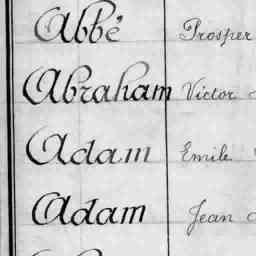 Abbé Prosper
Abraham Victor
Adam Emile
Adam Jean